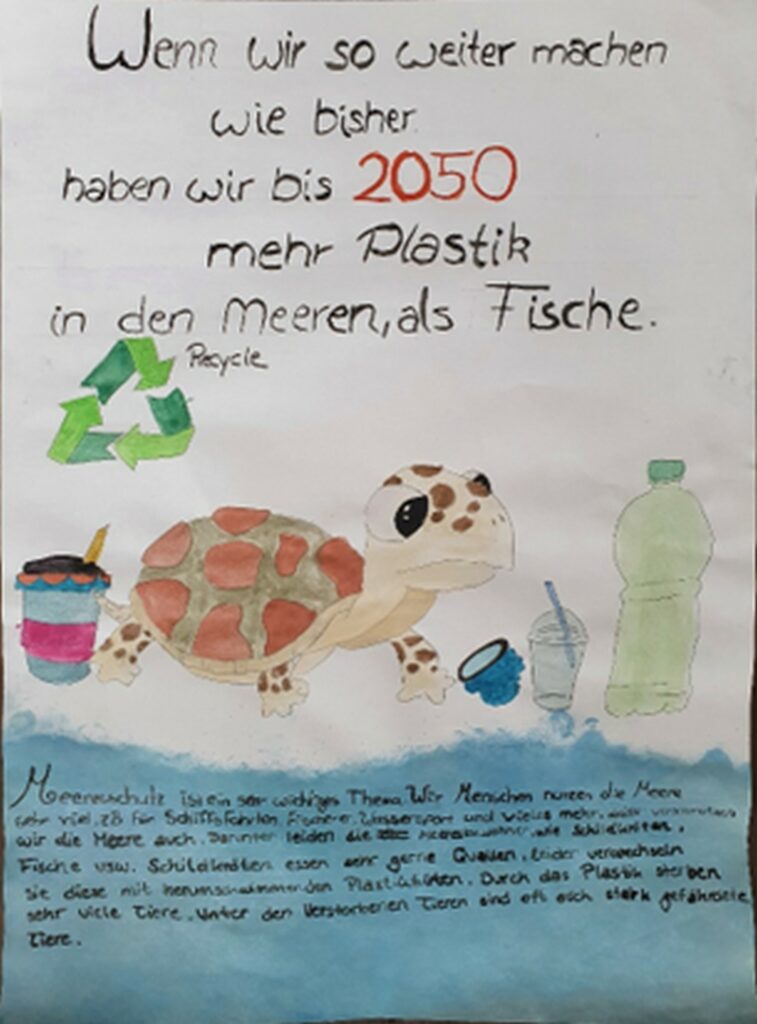 Wenn wir so weiter machen
wie bisher
haben wir bis 2050
mehr Plastik
in den Meeren, als Fische.
Recycle
Meeresschutz ist ein ser wichtiges Thema. Wir Menschen nutzen die Meere
sehr viel. z.B für Schifffahrten, Fischerei, Wassersport und vieles mehr.
wir die Meere auch. Darunter leiden die Meeresbewohner, wie Schildkröten,
Fische usw. Schildkröten essen sehr gerne Quallen. Leider verwechseln
sie diese mit herumschwimmenden Plastiktüten. Durch das Plastik sterben
sehr viele Tiere. Unter den Verstorbenen Tieren sind oft auch stark gefährdete
Tiere.